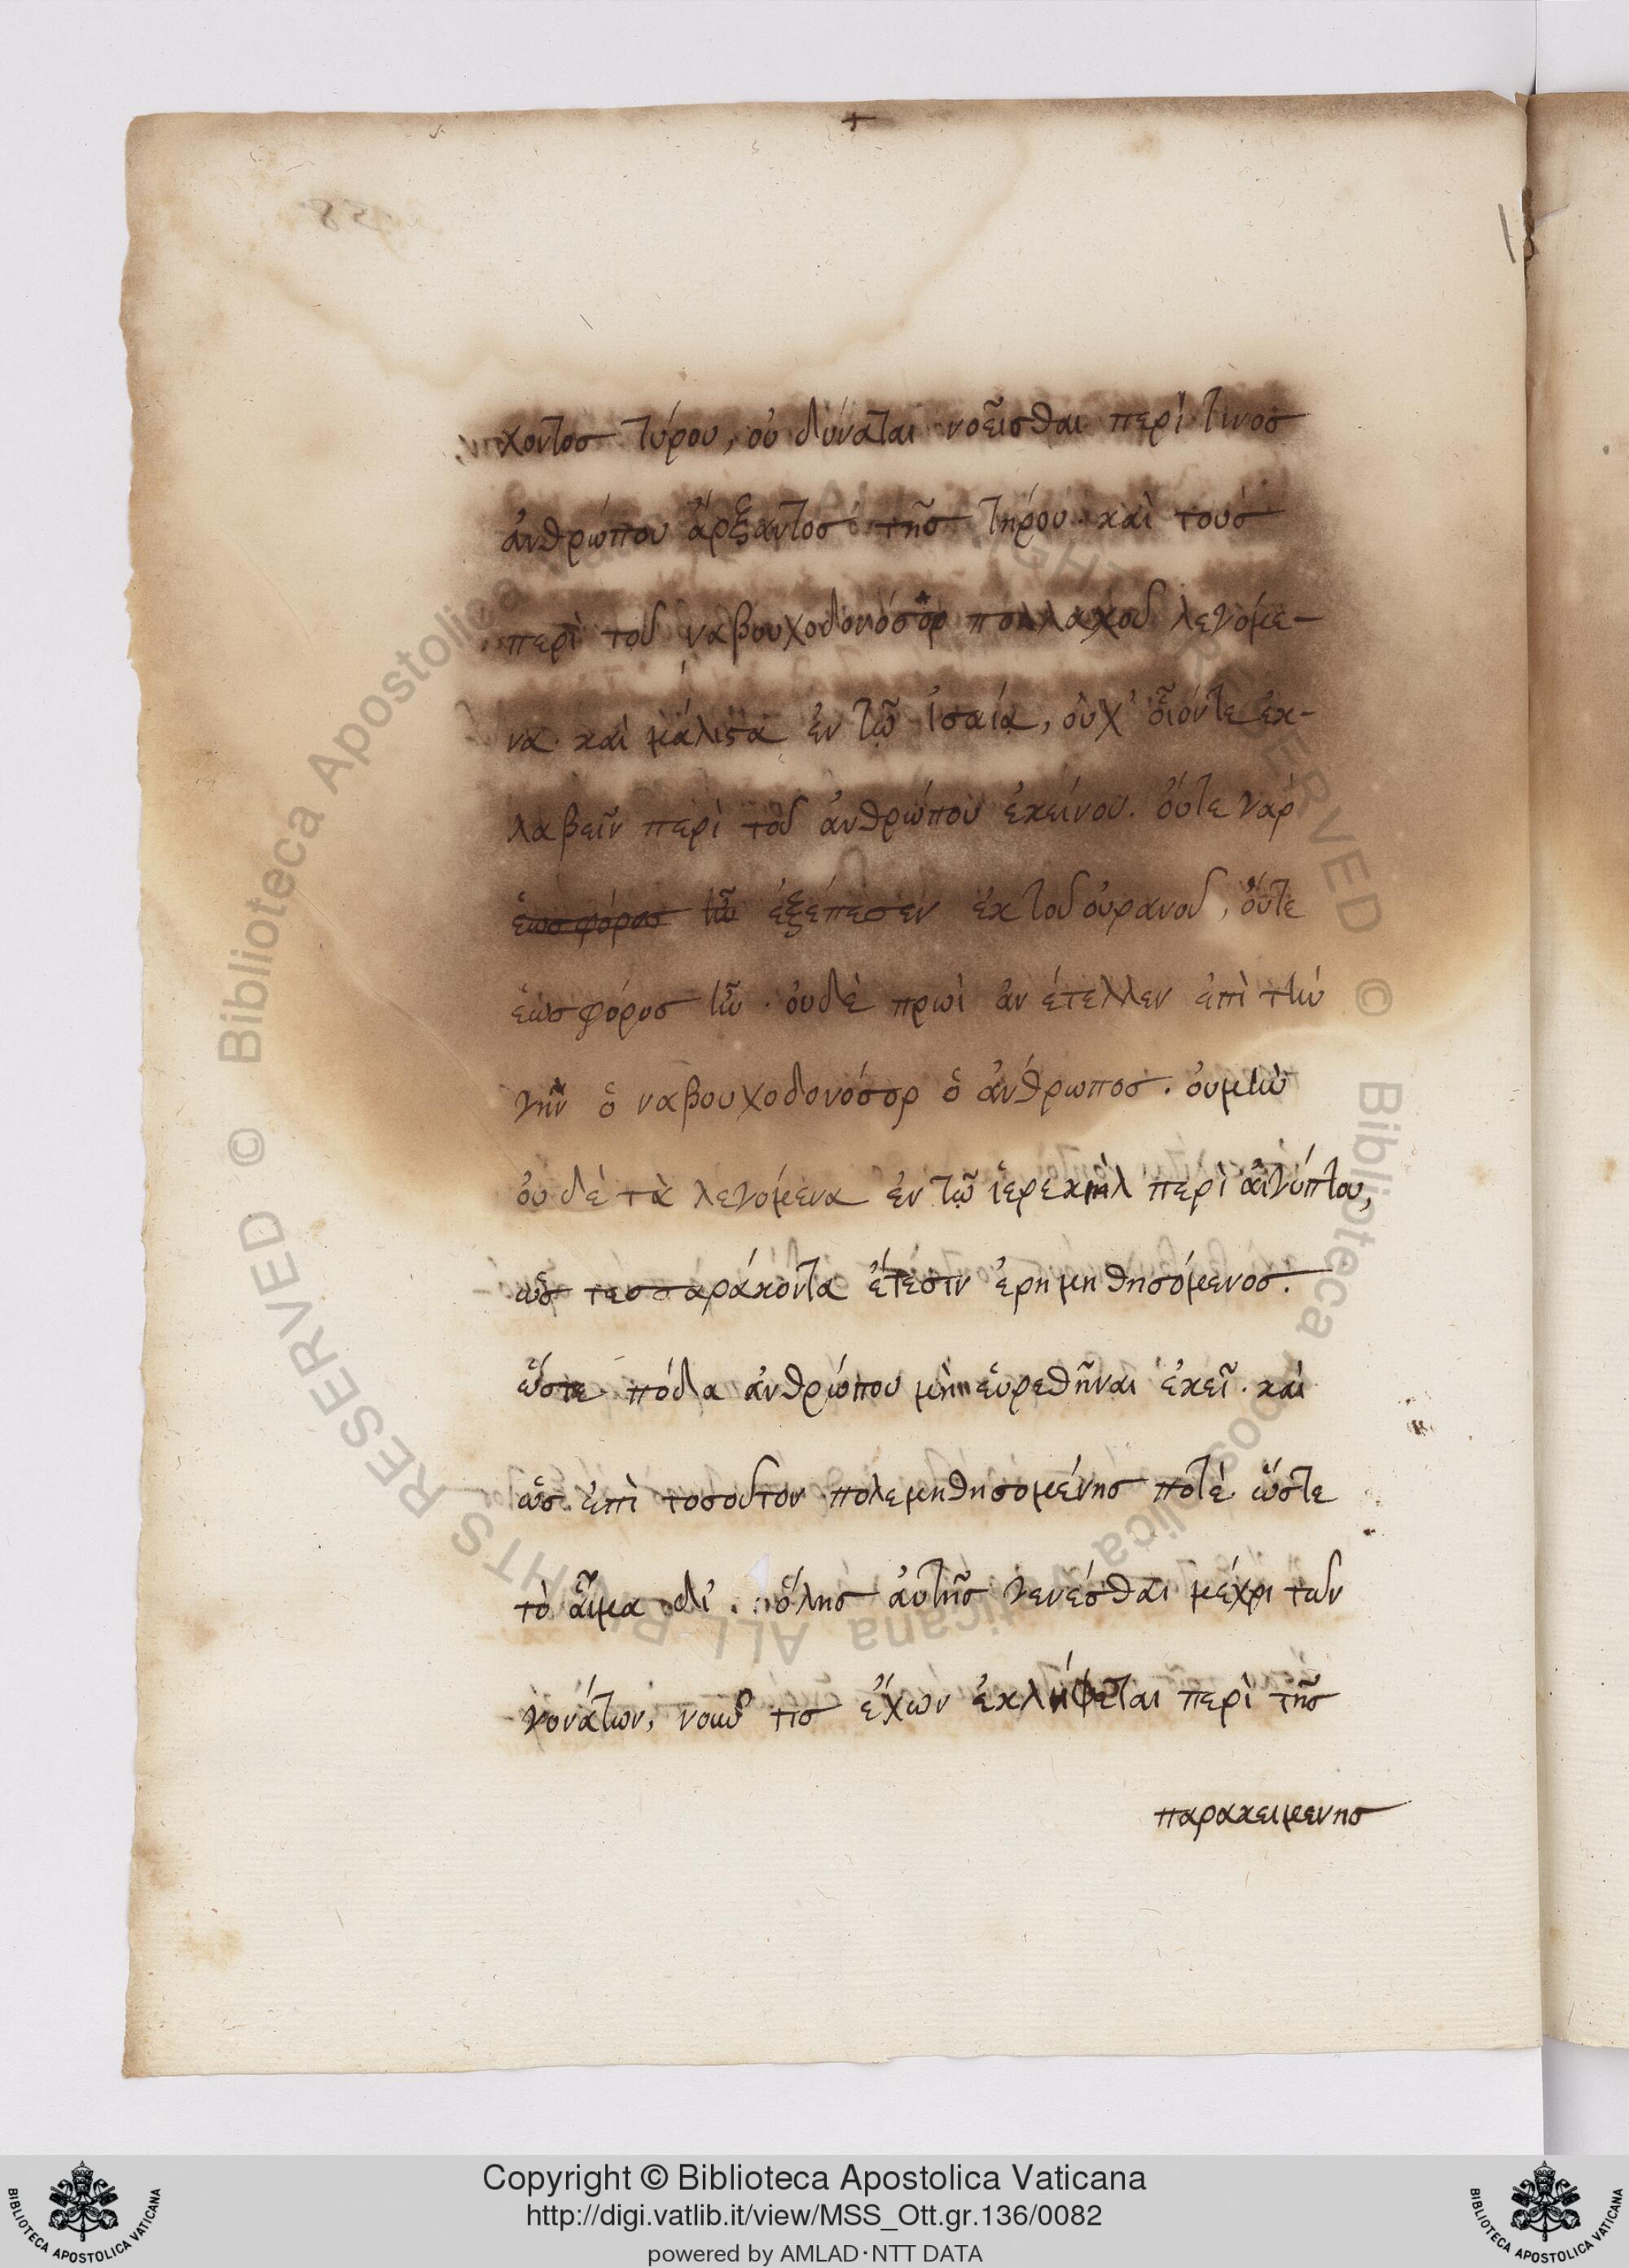 χοντος τύρου, οὐ δύναται νοεῖσθαι περί τινος
ἀνθρώπου ἄρξαντος τῆς τηρου. καὶ τοὺς
περὶ τοῦ ναβουχοδονόσορ πολλαχοῦ λεγόμε-
να καὶ μάλιστα ἐν τῷ ἰσαίᾳ, οὐχ' οἷόντε ἐκ-
λαβεῖν περὶ τοῦ ἀνθρώπου ἐκείνου. οὔτε γὰρ
ἑωσφόρος ἦν ἐξέπεσεν ἐκ τοῦ οὐρανοῦ, οὔτε
ἑωσφόρος ἦν. οὐδὲ πρωὶ ἀνέτελλεν ἐπὶ τὴν
γῆν ὁ ναβουχοδονόσορ ὁ ἄνθρωπος. οὐμὴν
οὐδὲ τὰ λεγόμενα ἐν τῷ ἱερεκιὴλ περὶ αἰγύπτου,
ὡς τεσσαράκοντα ἔτεσιν ἐρημηθησόμενος.
ὥστε πόδα ἀνθρώπου μὴ εὑρεθῆναι ἐκεῖ. καὶ
ὡς ἐπὶ τοσοῦτον πολεμηθησομένης ποτὲ ὥστε
τὸ αἷμα δι' ὅλης αὐτῆς γενέσθαι μέχρι τῶν
γονάτων, νοῦν τις ἔχων ἐκλήψεται περὶ τῆς
παρακειμενης
Copyright © Biblioteca Apostolica Vaticana
http://digi.vatlib.it/view/MSS_Ott.gr.136/0082
powered by AMLAD·NTT DATA
BIBLIOTECA APOSTOLICA VATICANA
BIBLIOTECA APOSTOLICA VATICANA
Biblioteca Apostolica Vaticana ALL RIGHTS RESERVED ©